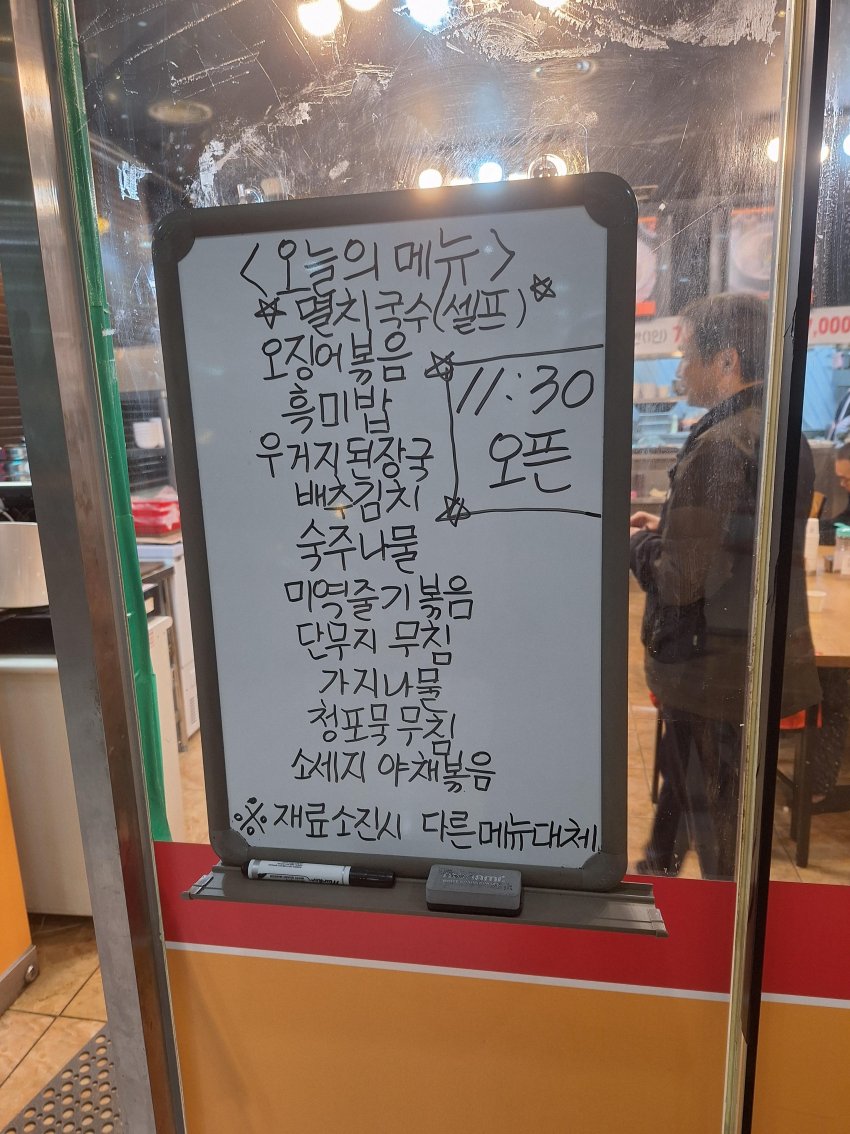 <오늘의 메뉴>
☆ 멸치국수(셀프) ☆
오징어볶음
흑미밥
우거지된장국
배추김치
숙주나물
미역줄기볶음
단무지 무침
가지나물
청포묵무침
소세지 야채볶음
※ 재료소진시 다른메뉴대체
11:30
오픈
7,000